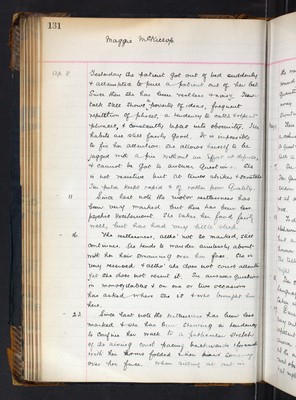 131
Maggie McKillop
Ap. 8 Yesterday the patient got out of bed suddenly
& attempted to pull a patient out of her bed.
Since then she has been restless & noisy. Her
talk still shows poverty of ideas, frequent
repetition of phrases, a tendency to
& constantly lapses into obscenity. Her
habits are still fairly good. It is impossible
to fix her attention. She allows herself to be
jagged with a pin without an effort at defence,
& cannot be got to answer questions. She
is not resistive but at times strikes &
The pulse keeps rapid & of rather poor quality.
11 Since last note the motor restlessness has
been very marked. But there has been less
psychic excitement. She takes her food fairly
well, but has had very little sleep.
16. The restlessness, altho' not so marked, still
continues. She tends to wander aimlessly about
with her hair streaming over her face. She is
very reserved & altho' she does not court attention
yet she does not resent it. She answers questions
in monosyllables & on one or two occasions
has asked where she is & who brought her
here.
23 Since last note the restlessness has been less
marked & she has been showing a tendency
to confine her walk to a particular stretch
of the airing court pacing backwards & forwards
with her arms folded & her hair
over her face. When sitting at rest in